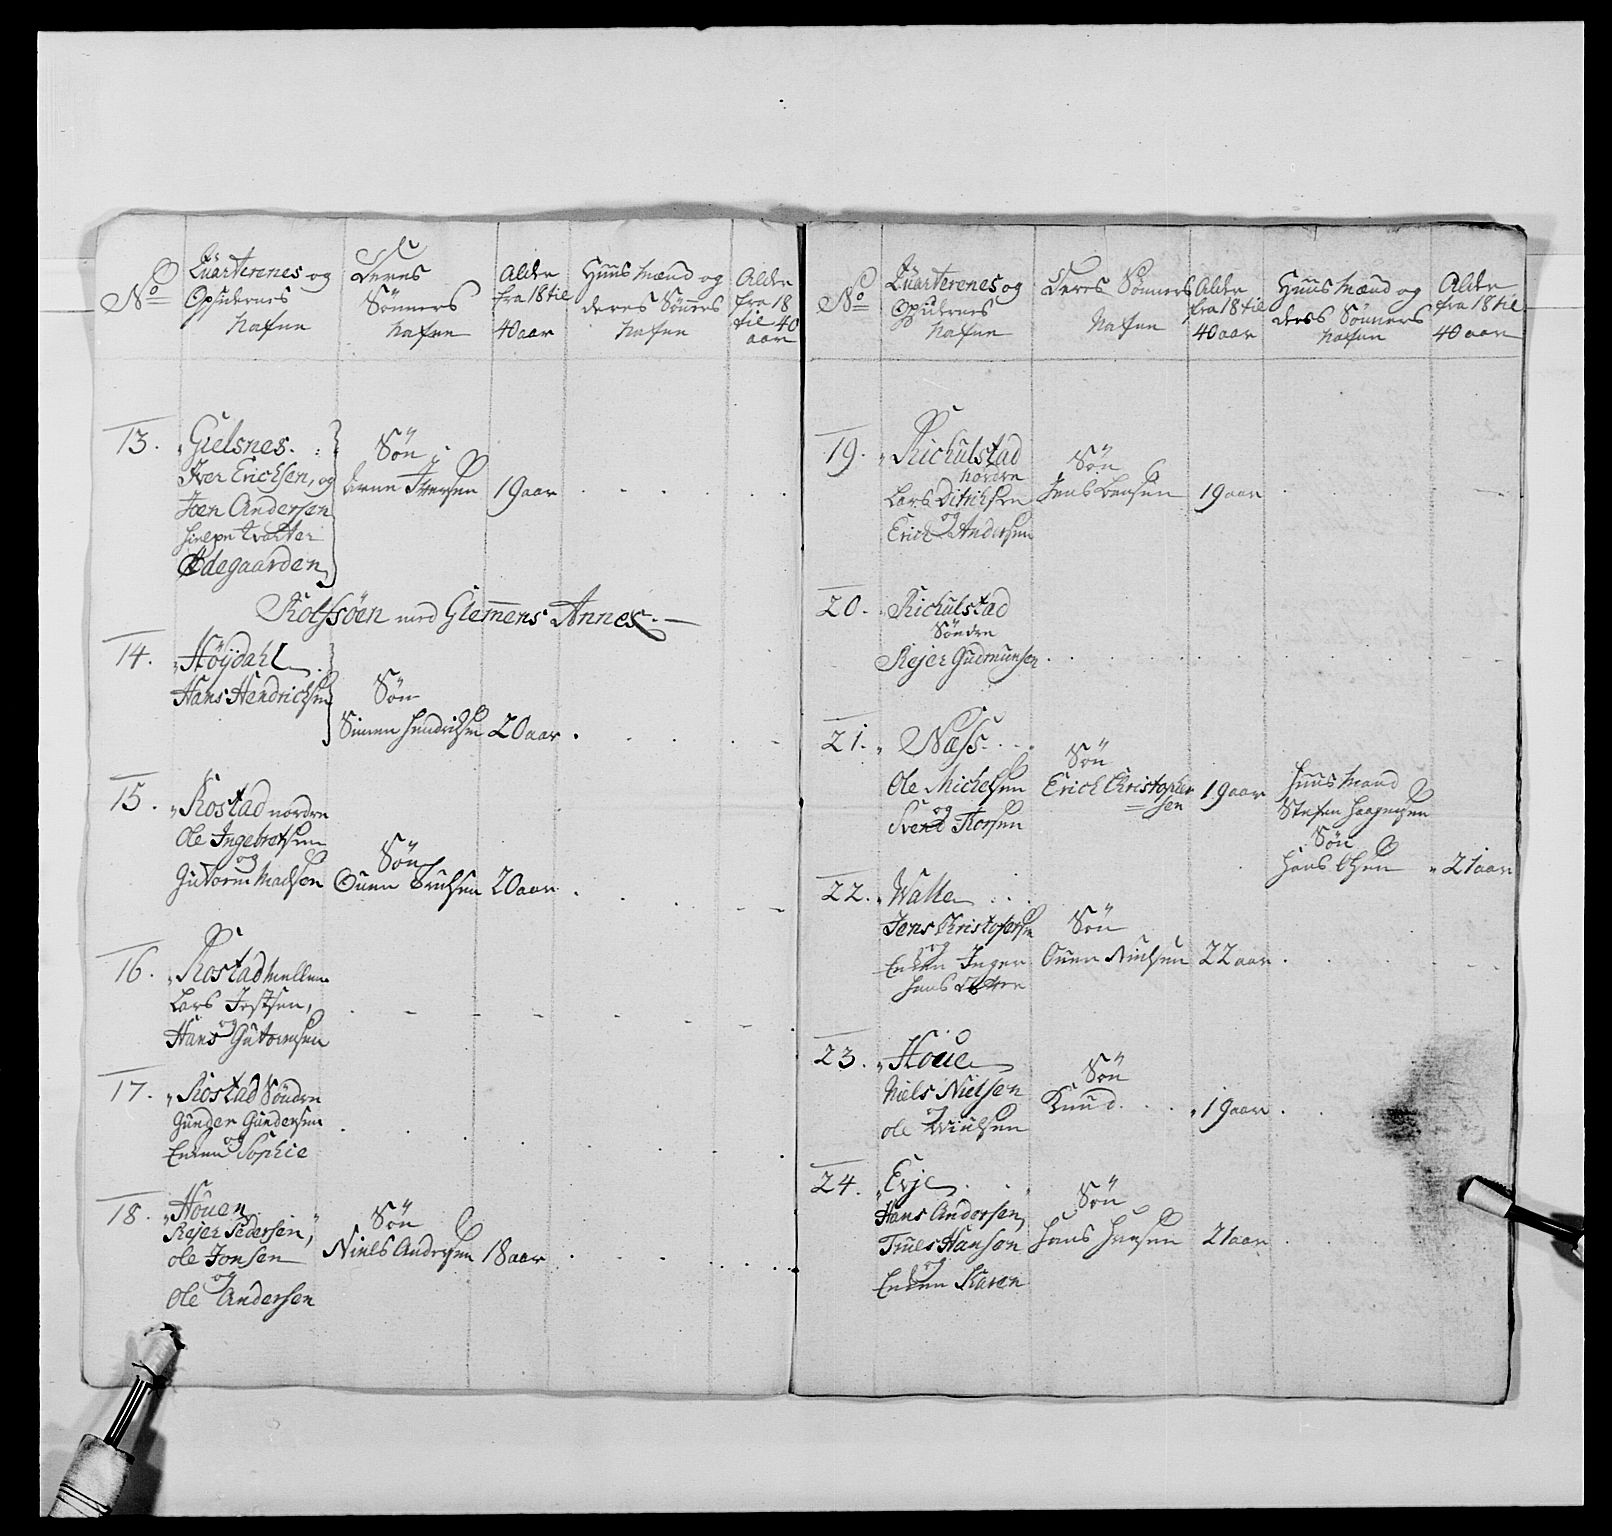 No
Quarterenes og
Opsidernes
Nafne
Deres
Sønners
Nafne
Alder
fra 18 til
40 aar
Huus Mænd og
deres Sønners
Nafne
Alder
fra 18
til 40
aar
13. Gielsnes.
Iver Erichsen, og
Joen Andersen
hielpe Qvarter
Ødegaarden
Søn
Arne Iversen 19 aar
Rolfsöen med Glemmens Annex
14. Höydahl
Hans Hendrichsen
Søn
Simen Hendrichsen 20 aar
15. Rostad nordre
Ole Ingebretsen
og
Gutorm Madsen
Søn
Ouen Truelsen 20 aar
16. Rostad Mellem
Lars Jostsen,
og
Hans Gutormsen
17. Rostad Söndre
Gunder Gundersen
og
Enken Sophie
18. Houen
Rejer Pedersen,
Ole Jonsen
og
Ole Andersen
Søn
Niels Andersen 18 aar
No
Quarterenes og
Opsidernes
Nafne
Deres Sønners
Nafne
Alder
fra 18 til
40 aar
Huus Mænd og
deres Sönners
Nafne
Alder
fra 18 til
40 aar
19. Kichulstad
nordre
Lars Ditrichsen
og
Erich Andersen
Søn
Jens Larsen 19 aar
20. Kichulstad
Söndre
Rejer Gudmunsen
21. Næss
Ole Michelsen
og
Svend Thorsen
Søn
Erich Christopher
sen
19 aar
Huus Mand
Stefen Haagensen
Søn
Hans Olsen 21 aar
22. Walle
Jens Christophersen
og
Enken Inger
Hans Datter
Søn
Ouen Nielsen 22 aar
23. Houe
Niels Nielsen
Ole Nielsen
Søn
Knud 19 aar
24. Evje
Hans Andersen,
Trues Hanson
og
Enken Karen
Søn
Hans Hansen 21 aar